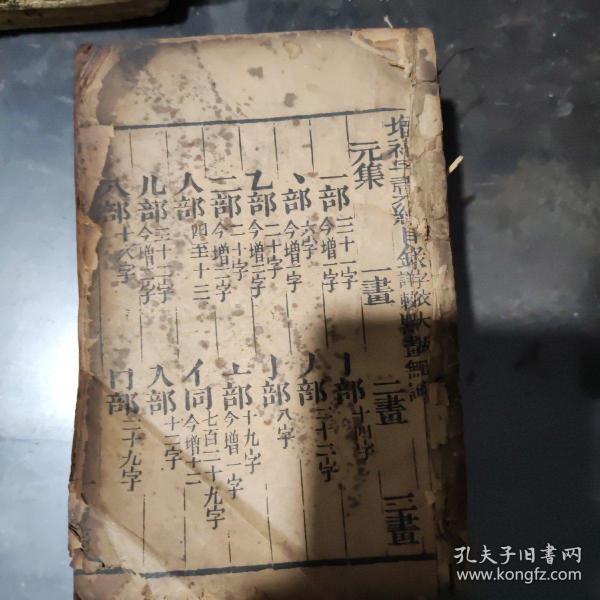 增補字彙 目錄
元集 一畫 二畫 三畫
一部 三十一字 今增一字 丨部 十四字
丶部 六字 今增一字 丿部 二十二字
乙部 二十字 今增三字 亅部 八字
二部 二十字 今增二字 亠部 十九字 今增一字
人部 四至十三 亻同 七百二十九字 今增十二
儿部 三十二字 今增二字 入部 十二字
八部 十八字 冂部 三十九字
孔夫子旧书网
www.kongfz.com